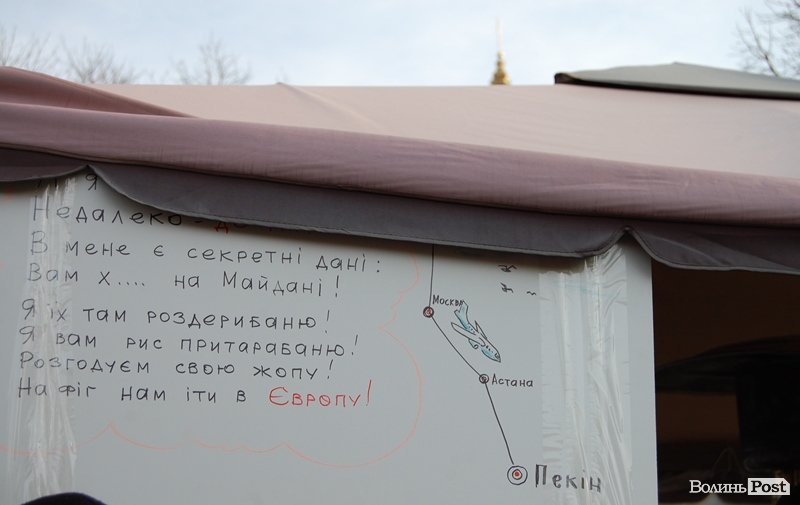 Я
Недалеко
В мене є секретні дані:
Вам х.... на Майдані!
Я їх там роздерибаню!
Я вам рис притарабаню!
Розгодуєм свою жопу!
На фіг нам іти в Європу!
Москва
Астана
Пекін
ВолиньPost